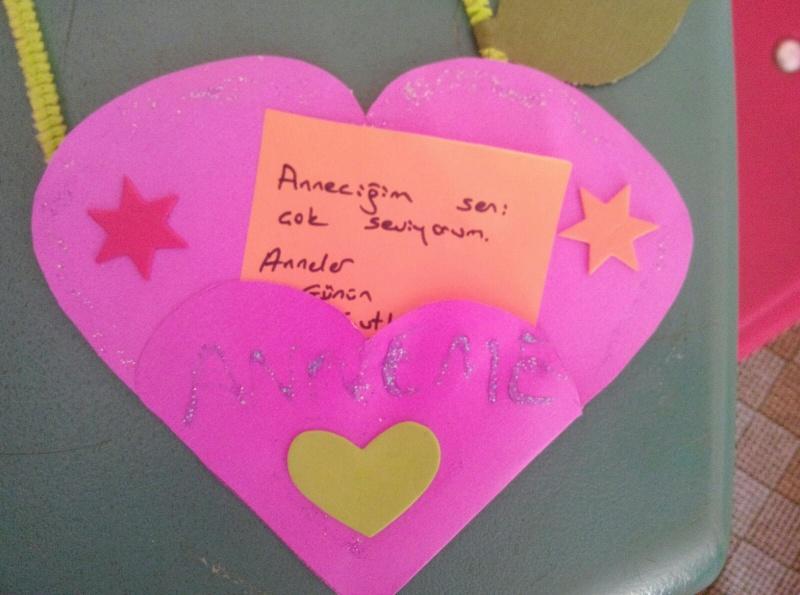 Anneciğim seni
çok seviyorum.
Anneler
Günün
ANNEME